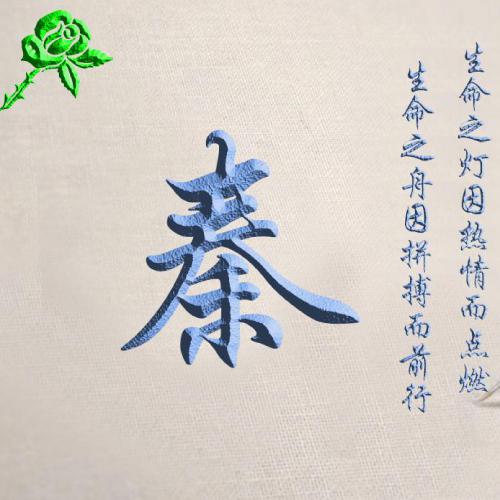 生命之灯因热情而点燃
生命之舟因拼搏而前行
秦